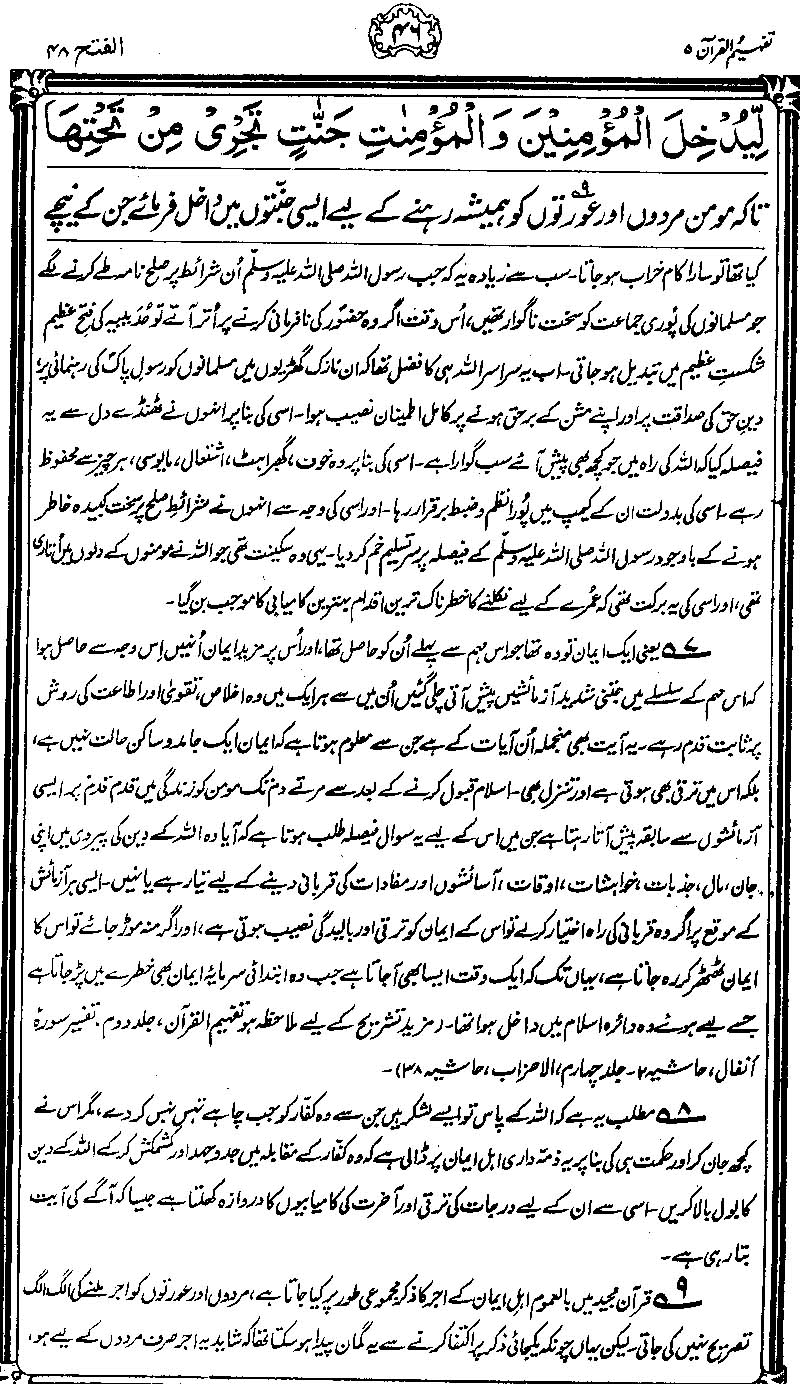 تفہیم القرآن ۵
۴۶
الفتح ۴۸
لِّيُدْخِلَ الْمُؤْمِنِيْنَ وَالْمُؤْمِنٰتِ جَنّٰتٍ تَجْرِيْ مِنْ تَحْتِهَا
تاکہ مومن مردوں اور عورتوں۹ کو ہمیشہ رہنے کے لیے ایسی جنّتوں میں داخل فرمائے جن کے نیچے
کیا تھا تو سارا کام خراب ہو جاتا۔ سب سے زیادہ یہ کہ جب رسول اللہ صلی اللہ علیہ وسلّم اُن شرائط پر صلح نامہ طے کرنے لگے
جو مسلمانوں کی پوری جماعت کو سخت ناگوار تھیں، اُس وقت اگر وہ حضورؐ کی نافرمانی کرنے پر اُتر آتے تو حُدَیبیہ کی فتح عظیم
شکستِ عظیم میں تبدیل ہو جاتی۔ اب یہ سراسر اللہ ہی کا فضل تھا کہ ان نازک گھڑیوں میں مسلمانوں کو رسولِ پاکؐ کی رہنمائی پر،
دینِ حق کی صداقت پر اور اپنے مشن کے برحق ہونے پر کامل اطمینان نصیب ہوا۔ اسی کی بنا پر انہوں نے ٹھنڈے دل سے یہ
فیصلہ کیا کہ اللہ کی راہ میں جو کچھ بھی پیش آئے سب گوارا ہے۔ اسی کی بنا پر وہ خوف، گھبراہٹ، اشتعال، مایوسی، ہر چیز سے محفوظ
رہے۔ اسی کی بدولت ان کے کیمپ میں پُورا نظم و ضبط برقرار رہا۔ اور اسی کی وجہ سے انہوں نے شرائطِ صلح پر سخت کبیدہ خاطر
ہونے کے باوجود رسول اللہ صلی اللہ علیہ وسلّم کے فیصلہ پر سرِ تسلیم خم کر دیا۔ یہی وہ سکینت تھی جو اللہ نے مومنوں کے دلوں میں اُتاری
تھی، اور اسی کی یہ برکت تھی کہ عُمرے کے لیے نکلنے کا خطرناک ترین اقدام بہترین کامیابی کا موجب بن گیا۔
۷ یعنی ایک ایمان تو وہ تھا جو اس مہم سے پہلے اُن کو حاصل تھا، اور اُس پر مزید ایمان اُنہیں اِس وجہ سے حاصل ہوا
کہ اس مہم کے سلسلے میں جتنی شدید آزمائشیں پیش آتی چلی گئیں اُن میں سے ہر ایک میں وہ اخلاص، تقویٰ اور اطاعت کی روش
پر ثابت قدم رہے۔ یہ آیت بھی منجملہ اُن آیات کے ہے جن سے معلوم ہوتا ہے کہ ایمان ایک جامد و ساکن حالت نہیں ہے،
بلکہ اس میں ترقی بھی ہوتی ہے اور تنزل بھی۔ اسلام قبول کرنے کے بعد سے مرتے دم تک مومن کو زندگی میں قدم قدم پر ایسی
آزمائشوں سے سابقہ پیش آتا رہتا ہے جن میں اس کے لیے یہ سوال فیصلہ طلب ہوتا ہے کہ آیا وہ اللہ کے دین کی پیروی میں اپنی
جان، مال، جذبات، خواہشات، اوقات، آسائشوں اور مفادات کی قربانی دینے کے لیے تیار ہے یا نہیں۔ ایسی ہر آزمائش
کے موقع پر اگر وہ قربانی کی راہ اختیار کرے تو اس کے ایمان کو ترقی اور بالیدگی نصیب ہوتی ہے، اور اگر منہ موڑ جائے تو اس کا
ایمان ٹھٹھر کر رہ جاتا ہے، یہاں تک کہ ایک وقت ایسا بھی آجاتا ہے جب وہ ابتدائی سرمایۂ ایمان بھی خطرے میں پڑ جاتا ہے
جسے لیے ہوئے وہ دائرہ اسلام میں داخل ہوا تھا۔ (مزید تشریح کے لیے ملاحظہ ہو تفہیم القرآن، جلد دوم، تفسیر سورۂ
انفال، حاشیہ ۲۔ جلد چہارم، الاحزاب، حاشیہ ۳۸)۔
۸ مطلب یہ ہے کہ اللہ کے پاس تو ایسے لشکر ہیں جن سے وہ کفار کو جب چاہے تہس نہس کر دے، مگر اس نے
کچھ جان کر اور حکمت ہی کی بنا پر یہ ذمّہ داری اہلِ ایمان پر ڈالی ہے کہ وہ کفار کے مقابلہ میں جدوجہد اور کشمکش کر کے اللہ کے دین
کا بول بالا کریں۔ اسی سے ان کے لیے درجات کی ترقی اور آخرت کی کامیابیوں کا دروازہ کھلتا ہے جیسا کہ آگے کی آیت
بتا رہی ہے۔
۹ قرآن مجید میں بالعموم اہلِ ایمان کے اجر کا ذکر مجموعی طور پر کیا جاتا ہے، مردوں اور عورتوں کو اجر ملنے کی الگ الگ
تصریح نہیں کی جاتی۔ لیکن یہاں چونکہ یکجائی ذکر پر اکتفا کرنے سے یہ گمان پیدا ہو سکتا تھا کہ شاید یہ اجر صرف مردوں کے لیے ہو،